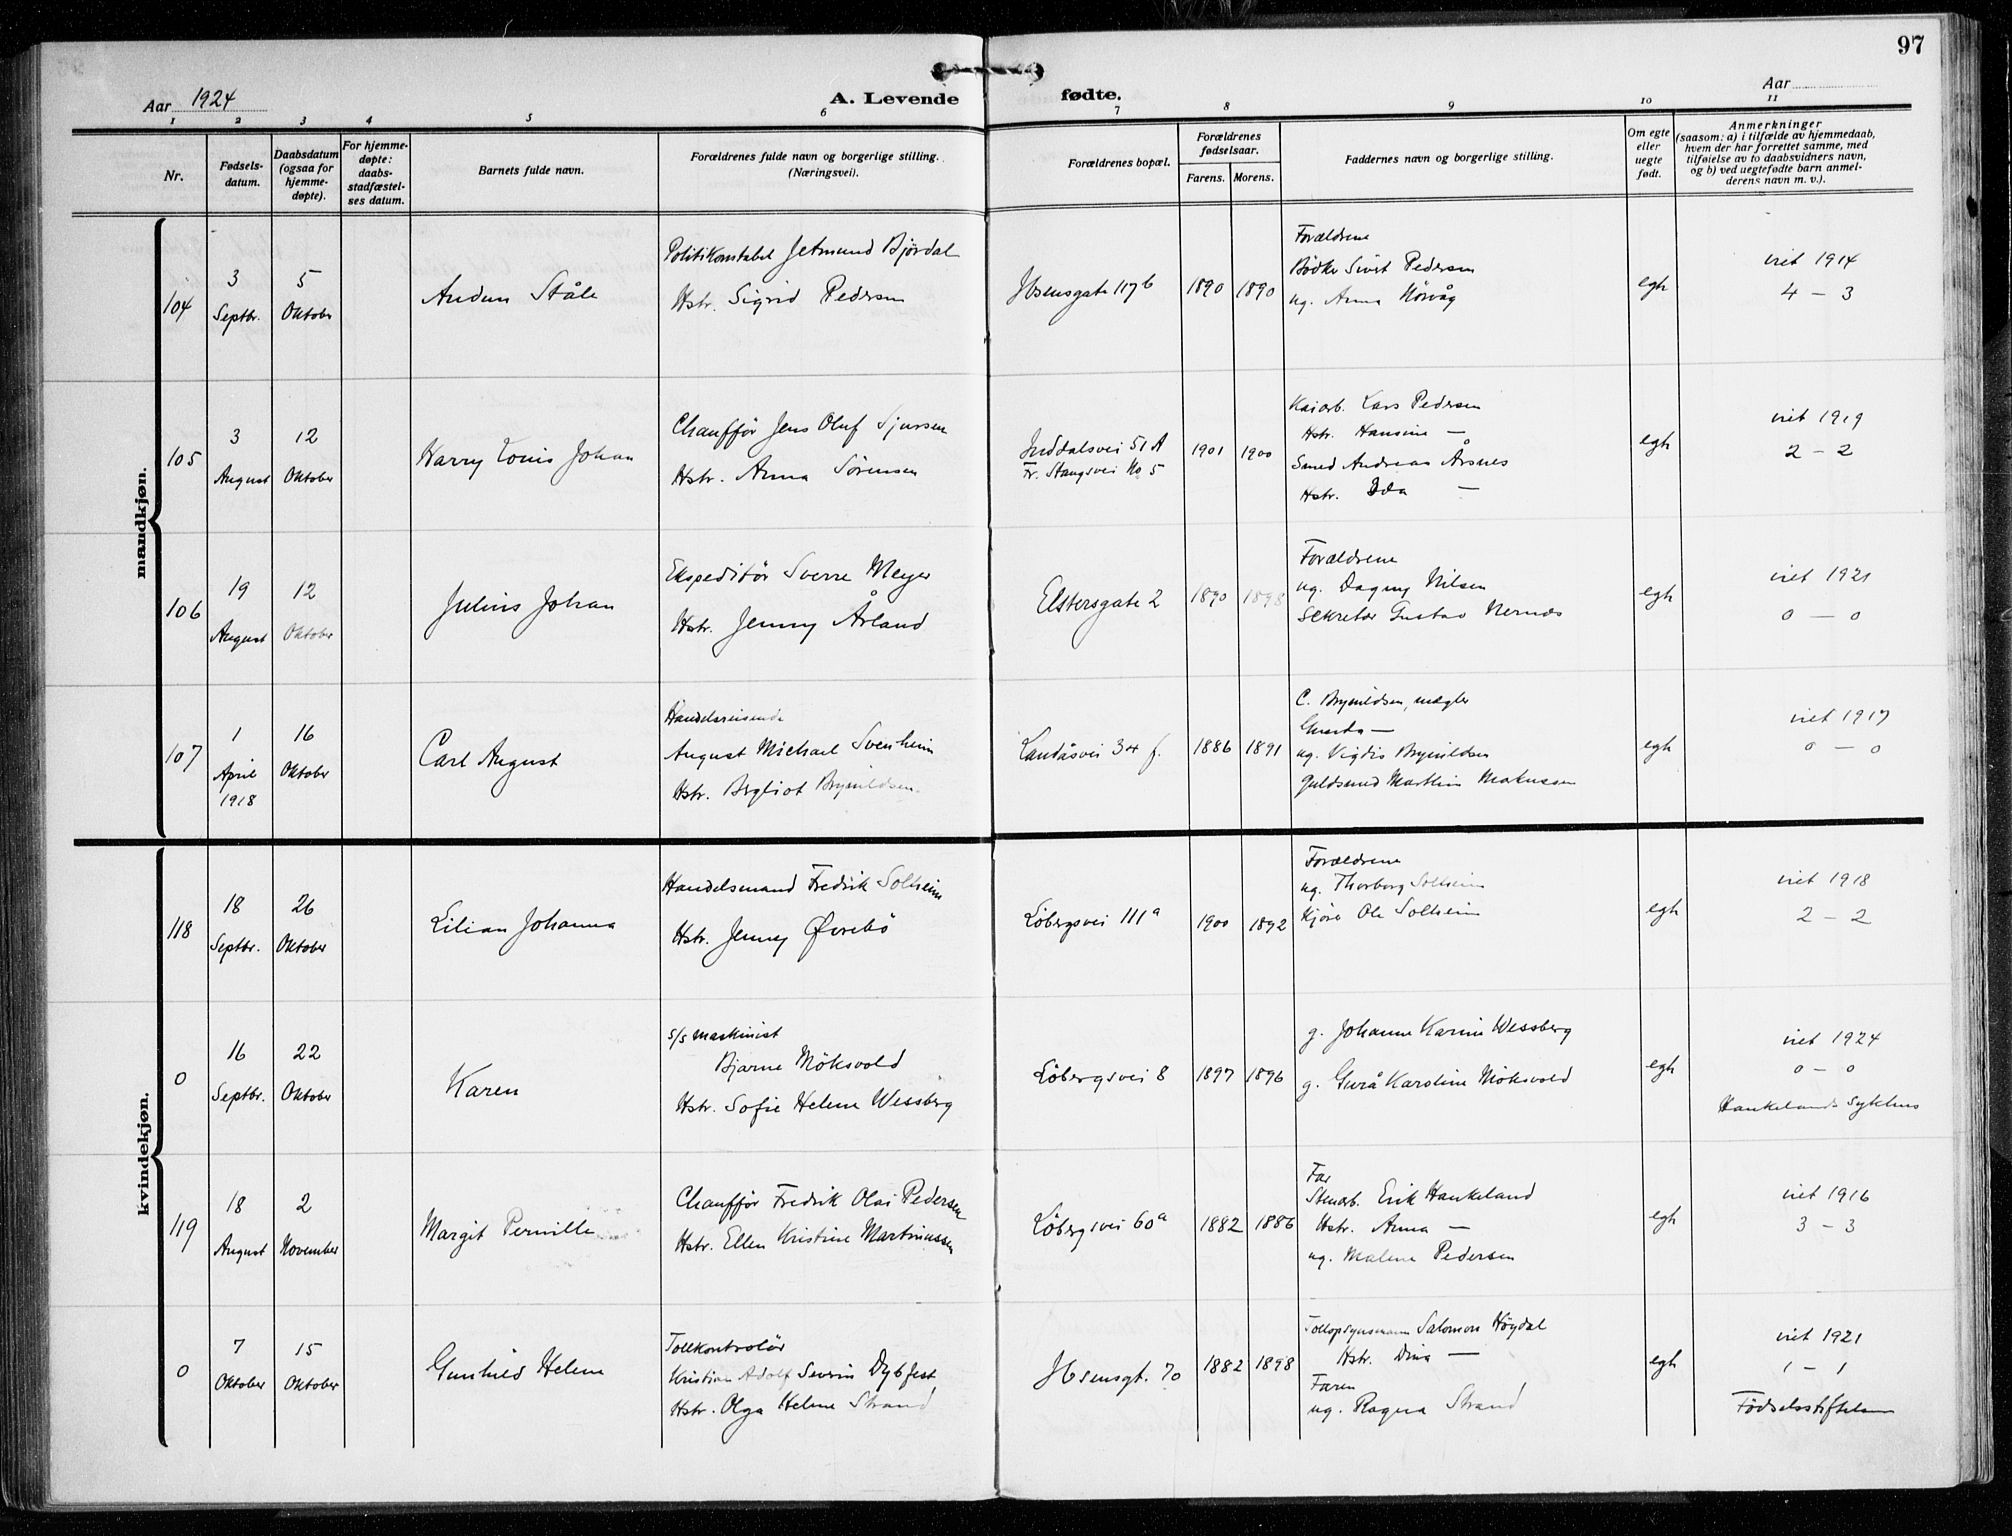 97
Aar 1924
A. Levende fødte.
Aar
1 2 3 4 5 6 7 8 9 10 11
Nr.
Fødsels-
datum.
Daabsdatum
(ogsaa for
hjemme-
døpte).
For hjemme-
døpte:
daabs-
stadfæstel-
ses datum.
Barnets fulde navn.
Forældrenes fulde navn og borgerlige stilling.
(Næringsvei).
Forældrenes bopæl.
Forældrenes
fødselsaar.
Farens. Morens.
Faddernes navn og borgerlige stilling.
Om egte
eller
uegte
født.
Anmerkninger
(saasom: a) i tilfælde av hjemmedaab,
hvem der har forrettet samme, med
tilføielse av to daabsvidners navn,
og b) ved uegtefødte barn anmel-
derens navn m. v.).
mandkjøn.
104
3
Septbr.
5
Oktober
Audun Ståle
Politikonstabel Jetmund Bjørdal
Hstr. Sigrid Pedersen
Ibsensgate 117b
1890 1890
Forældrene
Bødker Sivert Pedersen
ug. Anna Hørvåg
egte
viet 1914
4 – 3
105
3
August
12
Oktober
Harry Louis Johan
Chauffør Jens Oluf Sjursen
Hstr. Anna Sørensen
Inddalsvei 51 A
Fr. Stangsvei No 5
1901 1900
Kaiarb. Lars Pedersen
Hstr. Hansine —
Smed Andreas Årsnes
Hstr. Ida —
egte
viet 1919
2 – 2
106
19
August
12
Oktober
Julius Johan
Ekspeditør Sverre Meyer
Hstr. Jenny Årland
Elstersgate 2
1890 1898
Forældrene
ug. Dagny Nilsen
Sekretær Gustav Nernæs
egte
viet 1921
0 – 0
107
1
April
1918
16
Oktober
Carl August
Handelsreisende
August Michael Svenheim
Hstr. Bergliot Brynildsen
Landåsvei 34 f.
1886 1891
C. Brynildsen, mægler
—
ug. Vigdis Brynildsen
Guldsmed Marthin Makussen
egte
viet 1917
0 – 0
kvindekjøn.
118
18
Septbr.
26
Oktober
Lilian Johanna
Handelsmand Fredrik Solheim
Hstr. Jenny Øvrebø
Løbergsvei 111a
1900 1892
Forældrene
ug. Thorborg Solheim
Kjører Ole Solheim
egte
viet 1918
2 – 2
0
16
Septbr.
22
Oktober
Karen
s/s maskinist
Bjarne Møksvold
Hstr. Sofie Helene Wessberg
Løbergsvei 8
1897 1896
g. Johanne Karine Wessberg
g. Gurå Karoline Møksvold
egte
viet 1924
0 – 0
Haukelands Sykehus
119
18
August
2
November
Margit Pernille
Chauffør Fredrik Olai Pedersen
Hstr. Ellen Kristine Martinussen
Løbergsvei 60a
1882 1886
Far
Stenarb. Erik Haukeland
Hstr. Anna —
ug. Malene Pedersen
egte
viet 1916
3 – 3
0
7
Oktober
15
Oktober
Gunhild Helene
Tollkontrolør
Kristian Adolf Severin Dybfest
Hstr. Olga Helene Strand
Ibsensgt. 70
1882 1898
Tollopsynsmann Salomon Høydal
Hstr. Dina —
Faren
ug. Ragna Strand
egte
viet 1921
1 – 1
Fødselsstiftelsen